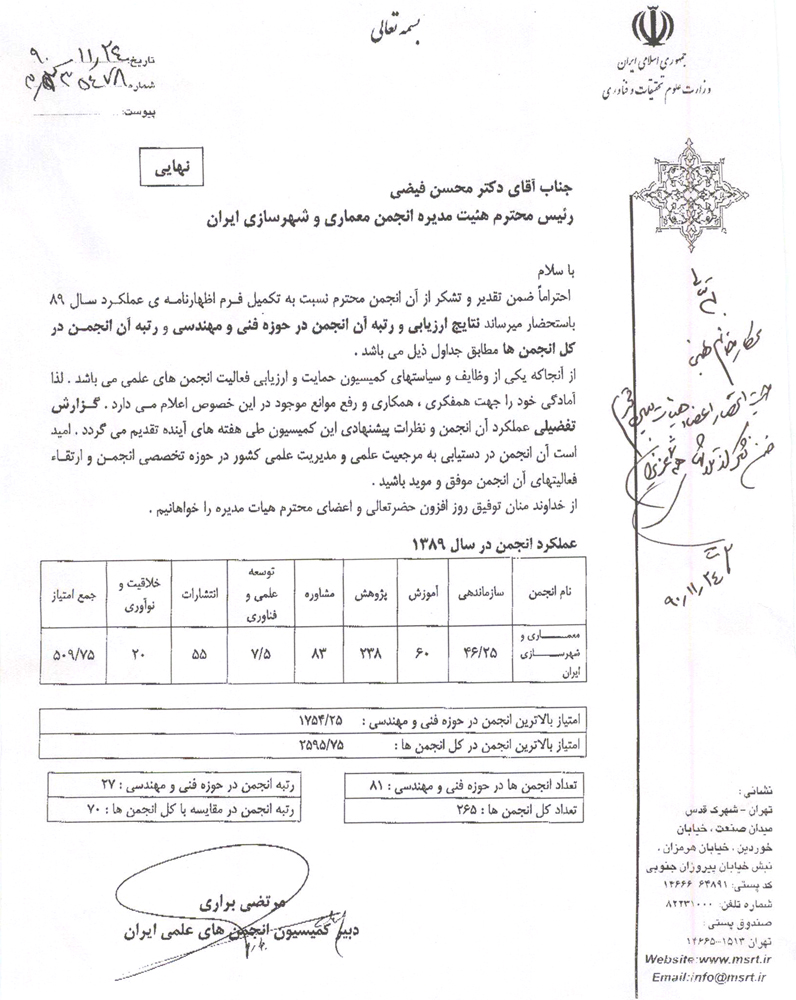 بسمه تعالی
جمهوری اسلامی ایران
وزارت علوم تحقیقات و فناوری
تاریخ: ۹۰/۱۱/۲۴
شماره
پیوست:
نهایی
جناب آقای دکتر محسن فیضی
رئیس محترم هئیت مدیره انجمن معماری و شهرسازی ایران
با سلام
احتراماً ضمن تقدیر و تشکر از آن انجمن محترم نسبت به تکمیل فرم اظهارنامه ی عملکرد سال ۸۹
باستحضار میرساند نتایج ارزیابی و رتبه آن انجمن در حوزه فنی و مهندسی و رتبه آن انجمن در
کل انجمن ها مطابق جداول ذیل می باشد .
از آنجاکه یکی از وظایف و سیاستهای کمیسیون حمایت و ارزیابی فعالیت انجمن های علمی می باشد . لذا
آمادگی خود را جهت همفکری ، همکاری و رفع موانع موجود در این خصوص اعلام می دارد . گزارش
تفضیلی عملکرد آن انجمن و نظرات پیشنهادی این کمیسیون طی هفته های آینده تقدیم می گردد . امید
است آن انجمن در دستیابی به مرجعیت علمی و مدیریت علمی کشور در حوزه تخصصی انجمن و ارتقاء
فعالیتهای آن انجمن موفق و موید باشید .
از خداوند منان توفیق روز افزون حضرتعالی و اعضای محترم هیات مدیره را خواهانیم .
عملکرد انجمن در سال ۱۳۸۹
نام انجمن سازماندهی آموزش پژوهش مشاوره توسعه علمی و فناوری انتشارات خلاقیت و نوآوری جمع امتیاز
معماری و شهرسازی ایران ۴۶/۲۵ ۶۰ ۲۳۸ ۸۳ ۷/۵ ۵۵ ۲۰ ۵۰۹/۷۵
امتیاز بالاترین انجمن در حوزه فنی و مهندسی : ۱۷۵۴/۲۵
امتیاز بالاترین انجمن در کل انجمن ها : ۲۵۹۵/۷۵
تعداد انجمن ها در حوزه فنی و مهندسی : ۸۱
تعداد کل انجمن ها : ۲۶۵
رتبه انجمن در حوزه فنی و مهندسی : ۲۷
رتبه انجمن در مقایسه با کل انجمن ها : ۷۰
مرتضی براری
دبیر کمیسیون انجمن های علمی ایران
۹۰/۱۱/۲۴
نشانی :
تهران - شهرک قدس
میدان صنعت ، خیابان
خوردین ، خیابان هرمزان ،
نبش خیابان پیروزان جنوبی
کد پستی: ۶۴۸۹۱ ۱۴۶۶۶
شماره تلفن: ۸۲۲۳۱۰۰۰
صندوق پستی :
تهران ۱۵۱۳-۱۴۶۶۵
Website:www.msrt.ir
Email:info@msrt.ir